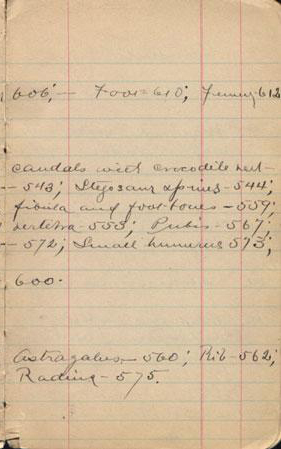 606; — Foot-610; Femur-612
caudals with crocodile vert-
-543; Stegosaur spines-544;
fibula and foot-bones-559;
vertebra-555; Pubis-567;
-572; Small humerus 573;
600.
Astragalus-560; Rib-562;
Radius-575.